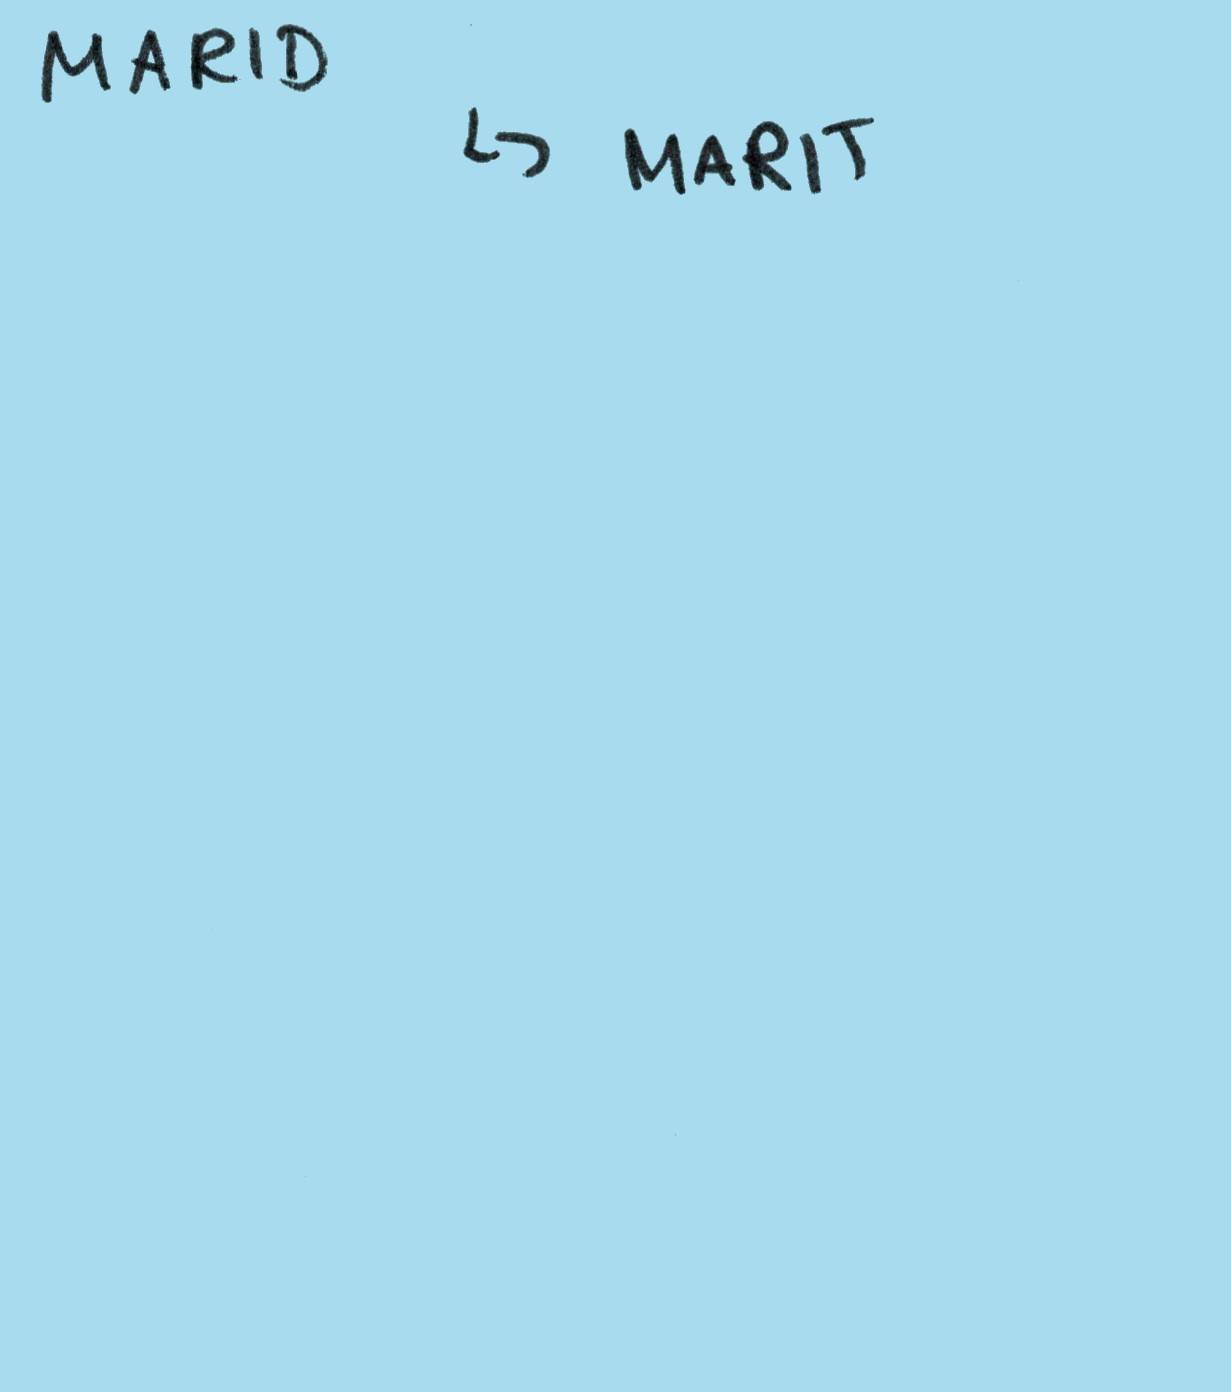 MARID
↳ MARIT